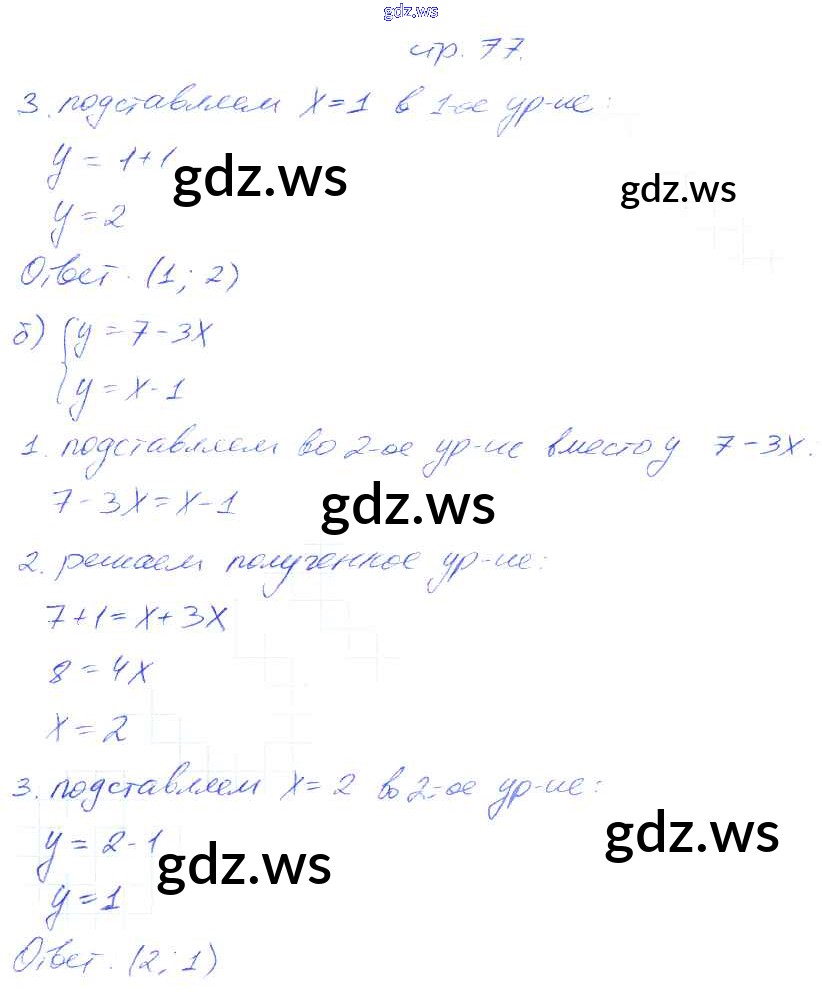 gdz.ws
стр. 77.
3. подставляем x=1 в 1-ое ур-ие:
y = 1+1
gdz.ws
gdz.ws
y = 2
Ответ. (1; 2)
б) { y = 7 - 3x
y = x - 1
1. подставляем во 2-ое ур-ие вместо y 7 - 3x:
7 - 3x = x - 1
gdz.ws
2. решаем полученное ур-ие:
7 + 1 = x + 3x
8 = 4x
x = 2
3. подставляем x = 2 во 2-ое ур-ие:
y = 2 - 1
gdz.ws
gdz.ws
y = 1
Ответ. (2; 1)